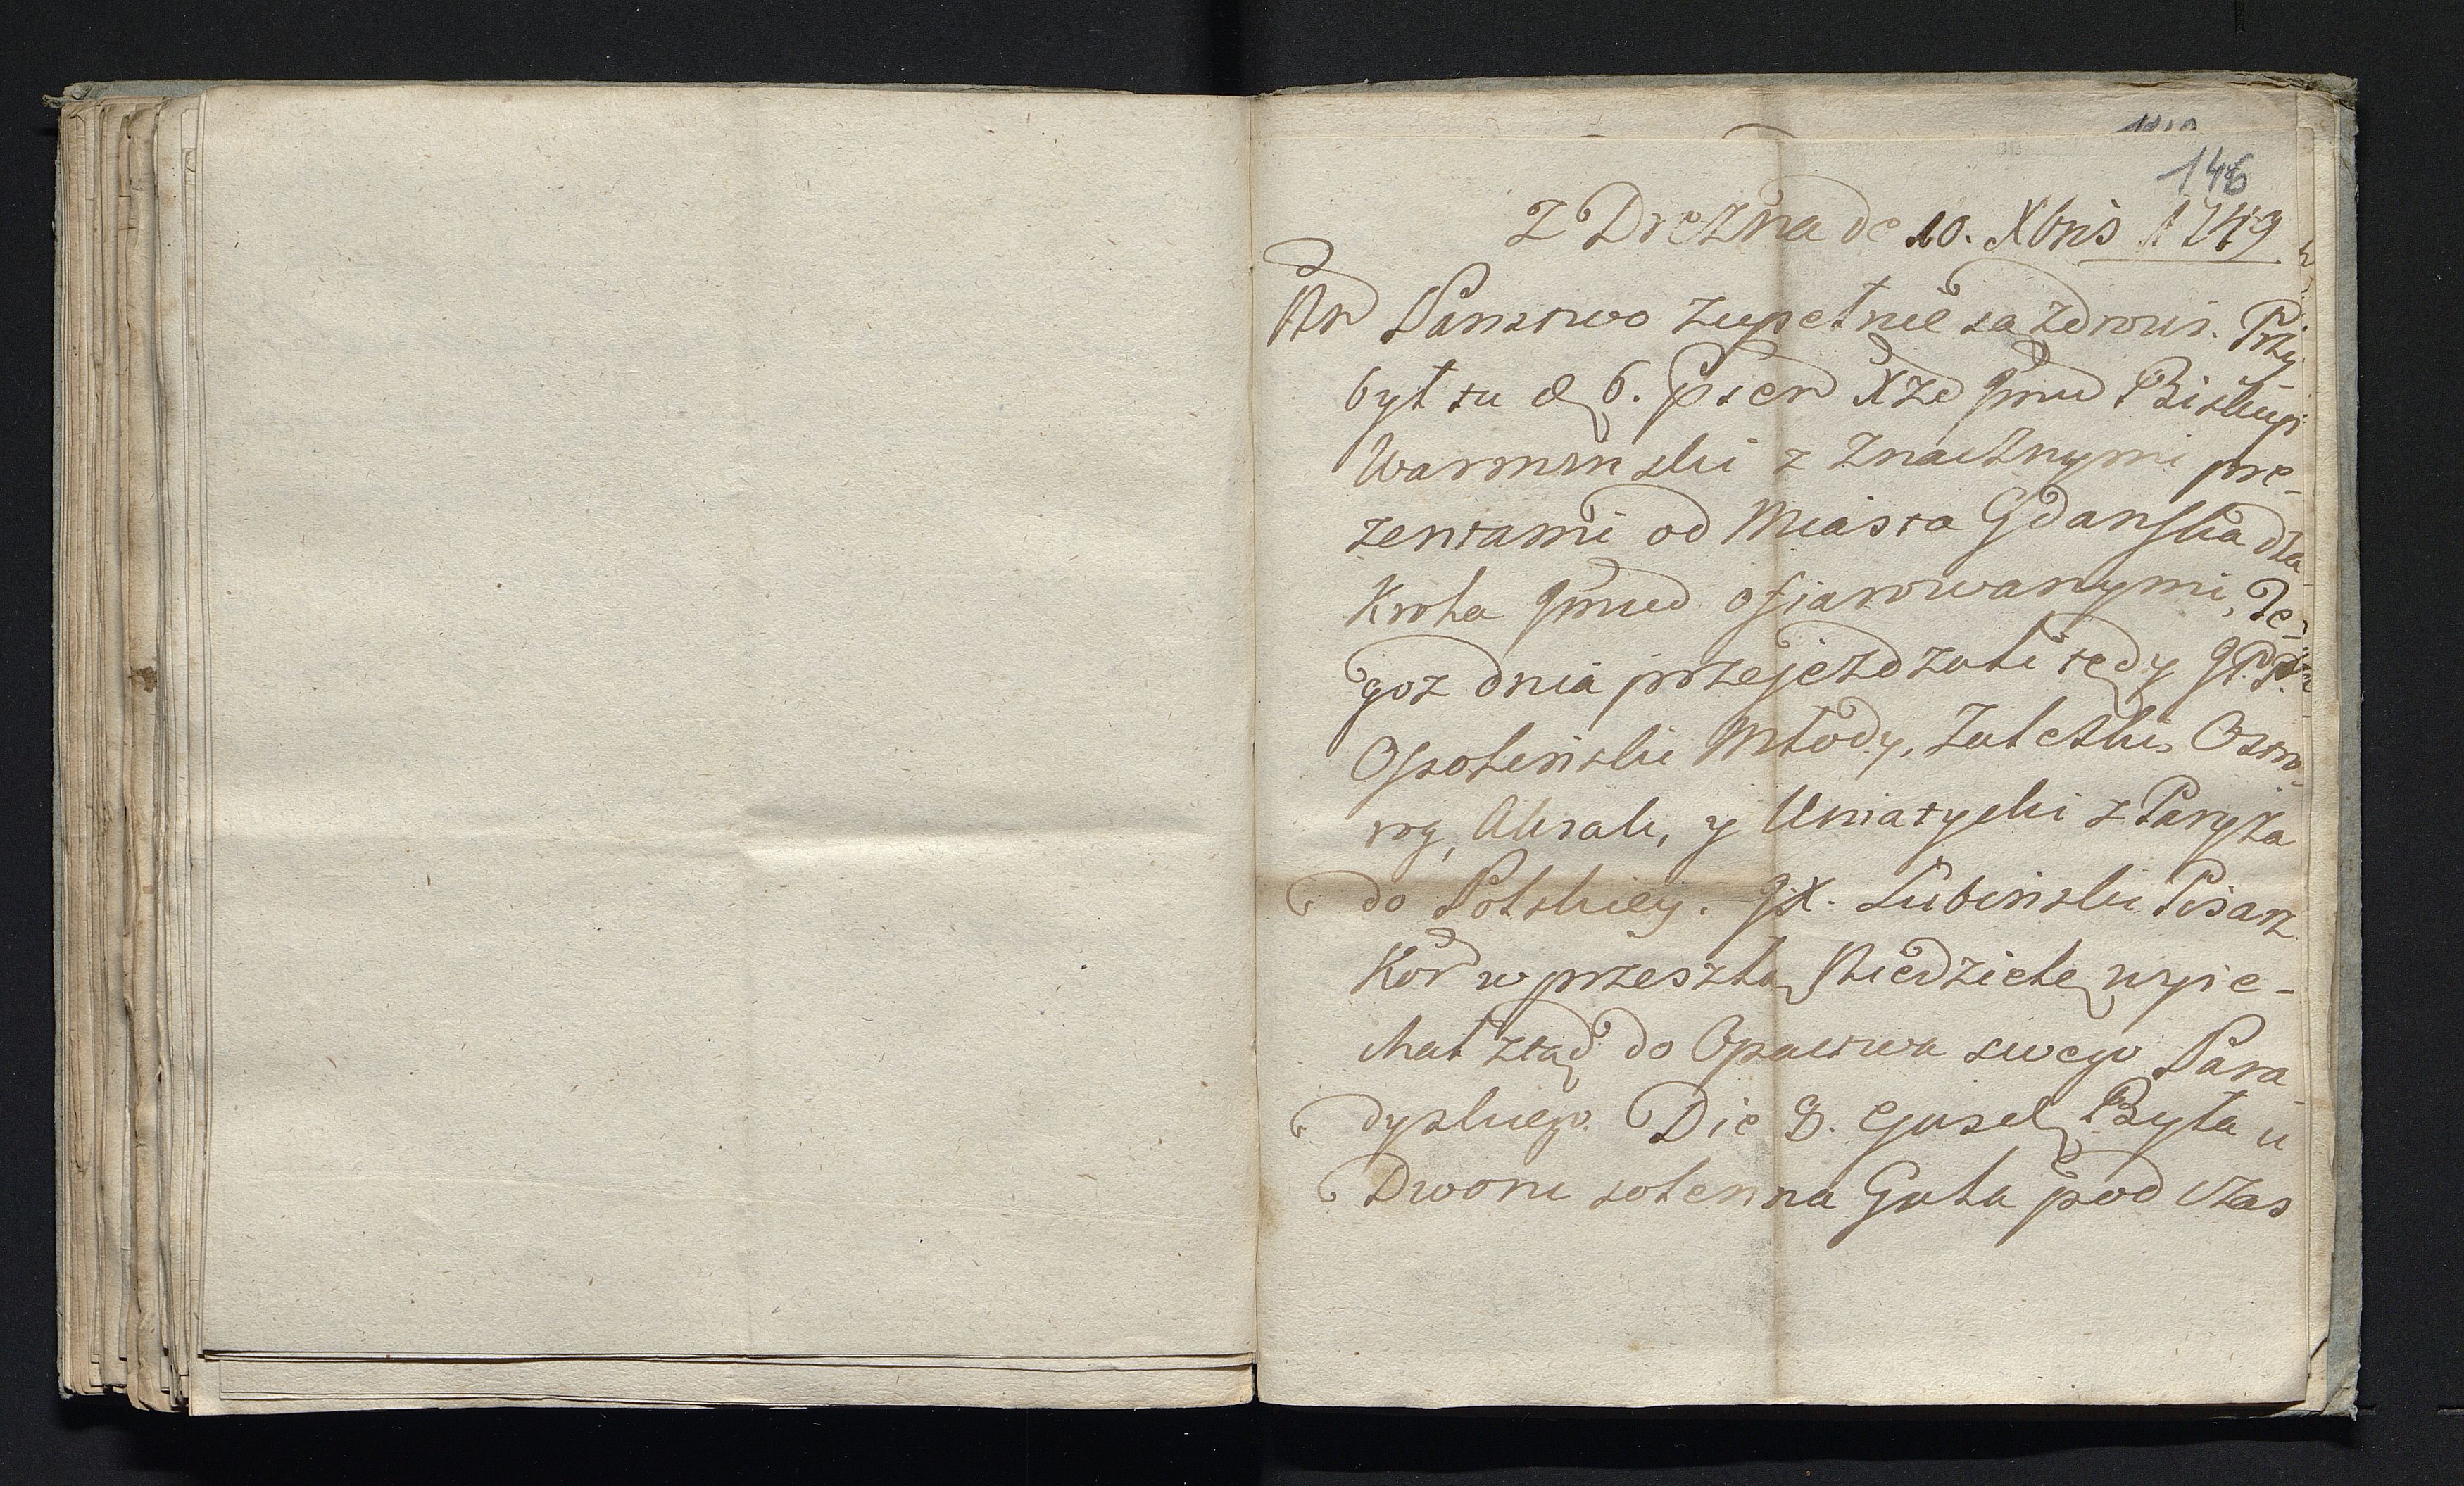 146
Z Drezna de 10. Xbris 1749
Nn Panstwo zupełnie są zdrowi. Przy-
był tu d. 6. psen Xże Jmć Biskup
Warminski z znacznymi pre-
zentami od Miasta Gdanska dla
Krola Jmci ofiarowanymi, Te-
goz dnia przejezdzali tędy JPP.
Opalinski Młody, Zaleski, Ostro-
rog, Aksak, y Uniatycki z Paryża
do Polskiey. JX. Lubinski Pisarz
Kor w przeszłą Niedzielę wyie-
chał ztąd do Opactwa swego Para
dyskiego. Die 8. ejusd Była u
Dworu solenna Gala pod czas